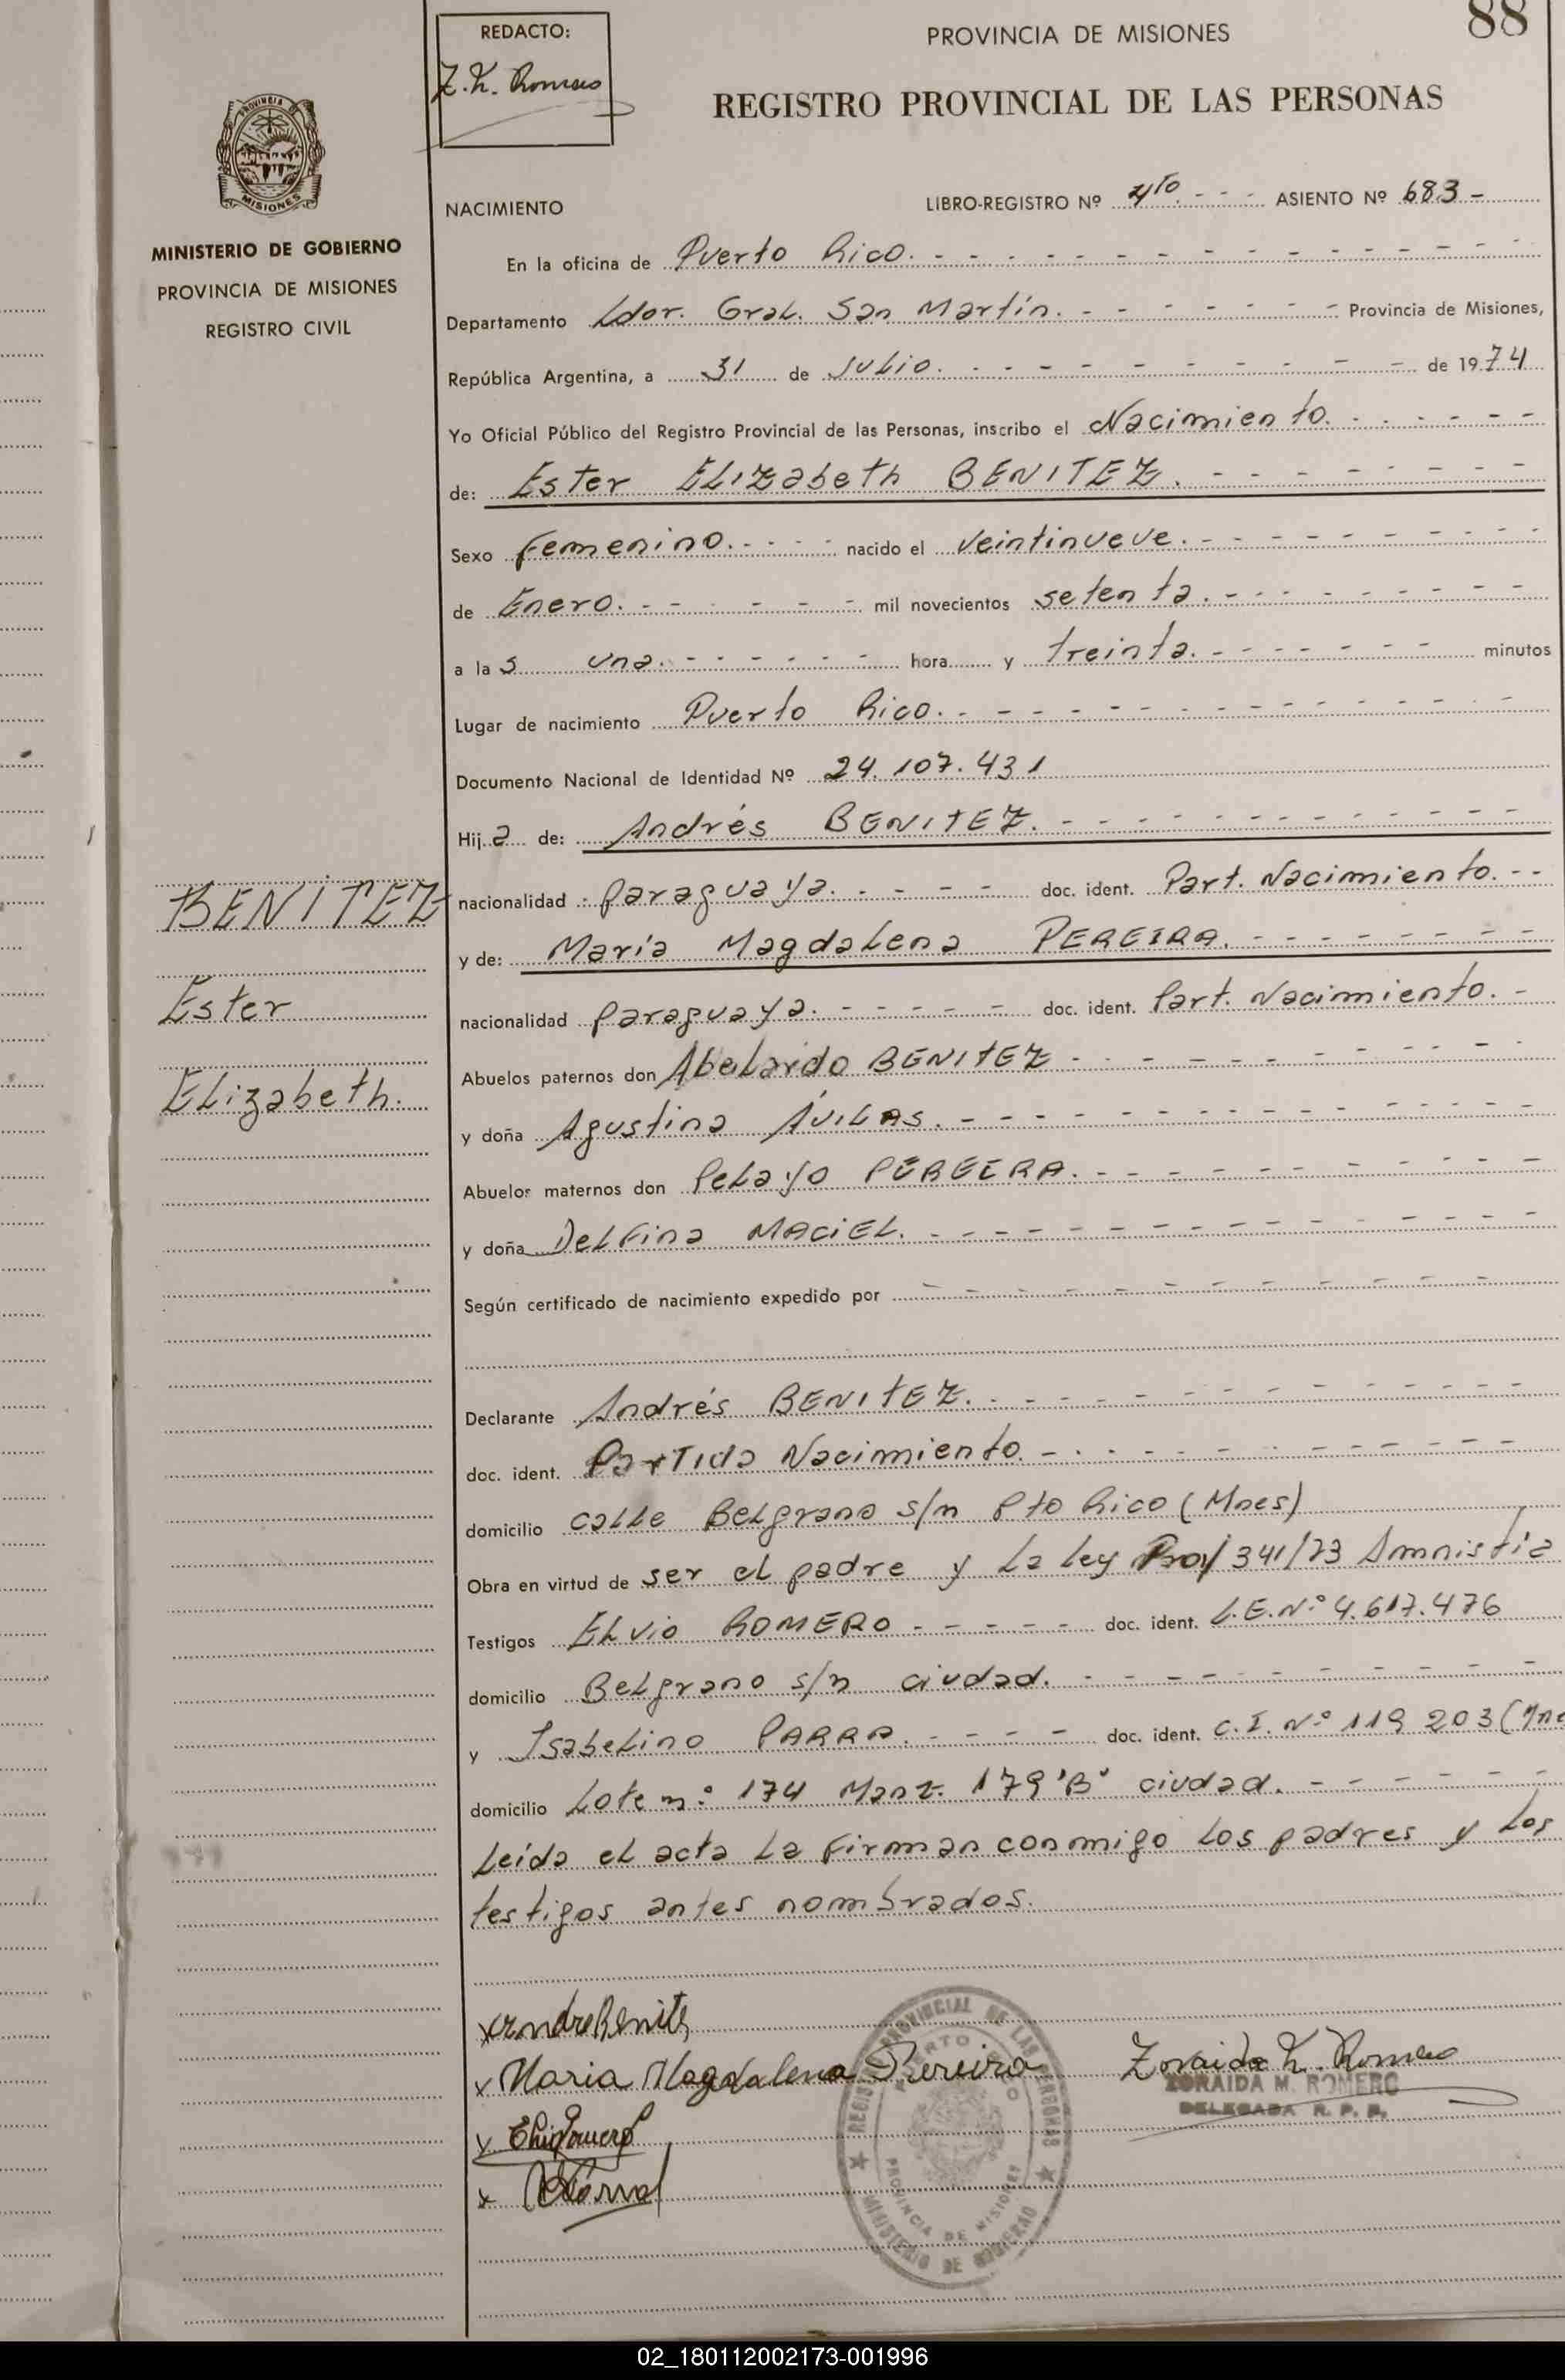 88
REDACTO:
Z. K. Romero
PROVINCIA DE MISIONES
REGISTRO PROVINCIAL DE LAS PERSONAS
PROVINCIA DE
MISIONES
MINISTERIO DE GOBIERNO
PROVINCIA DE MISIONES
REGISTRO CIVIL
NACIMIENTO LIBRO-REGISTRO Nº 4to. - - - ASIENTO Nº 683 -
En la oficina de Puerto Rico.
Departamento Ldor. Gral. San Martín. Provincia de Misiones,
República Argentina, a 31 de Julio. de 1974
Yo Oficial Público del Registro Provincial de las Personas, inscribo el Nacimiento.
de: Ester Elizabeth BENITEZ.
Sexo femenino. nacido el veintinueve.
de Enero. mil novecientos setenta.
a las una. hora y treinta. minutos
Lugar de nacimiento Puerto Rico.
Documento Nacional de Identidad Nº 24.107.431
Hija de: Andrés BENITEZ.
nacionalidad paraguaya. doc. ident. Part. Nacimiento.
y de: María Magdalena PEREIRA.
nacionalidad paraguaya. doc. ident. Part. Nacimiento.
Abuelos paternos don Abelardo BENITEZ
y doña Agustina ÁVILAS.
Abuelos maternos don Pelayo PEREIRA.
y doña Delfina MACIEL.
Según certificado de nacimiento expedido por
Declarante Andrés BENITEZ.
doc. ident. Partida Nacimiento.
domicilio calle Belgrano s/n Pto Rico (Mnes)
Obra en virtud de ser el padre y la ley 341/73 Amnistía
Testigos Elvio ROMERO doc. ident. L.E.Nº 4.617.476
domicilio Belgrano s/n ciudad.
y Isabelino PARRA. doc. ident. C.I. Nº 119 203 (Mne
domicilio Lote nº 174 Manz. 179 "B" ciudad.
Leída el acta la firman conmigo los padres y los
testigos antes nombrados.
BENITEZ
Ester
Elizabeth.
x Andre Benite
x Maria Magdalena Pereira
Zoraida K. Romero
ZORAIDA M. ROMERO
DELEGADA R. P. P.
REGISTRO PROVINCIAL DE LAS PERSONAS
PUERTO RICO
PROVINCIA DE MISIONES
MINISTERIO DE GOBIERNO
02_180112002173-001996